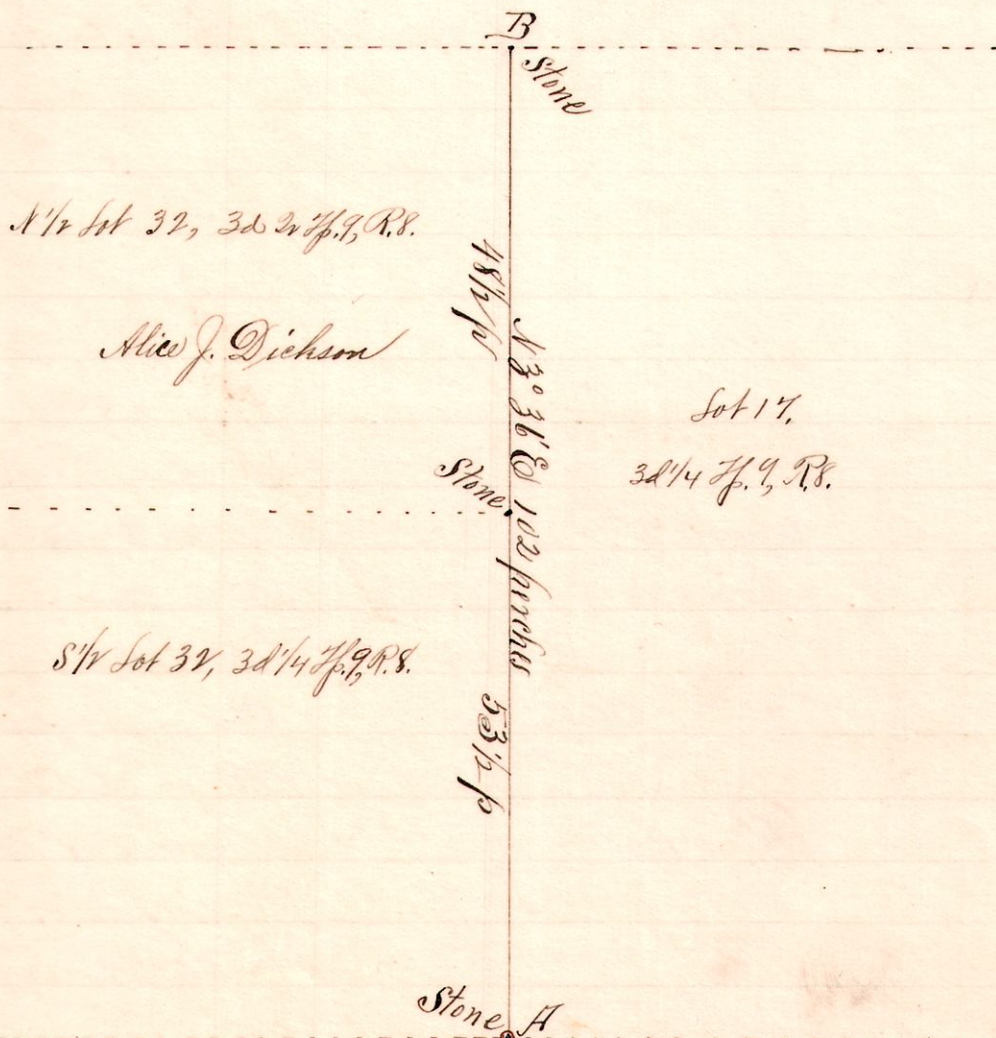 B
Stone
N 1/2 Lot 32, 3d 2r Tp. 9, R. 8.
48 1/2 p
Alice J. Dickson
N 3° 36' E 102 perches
Lot 17,
3d 1/4 Tp. 9, R. 8.
Stone
S 1/2 Lot 32, 3d 1/4 Tp. 9, R. 8.
53 1/2 p
Stone A